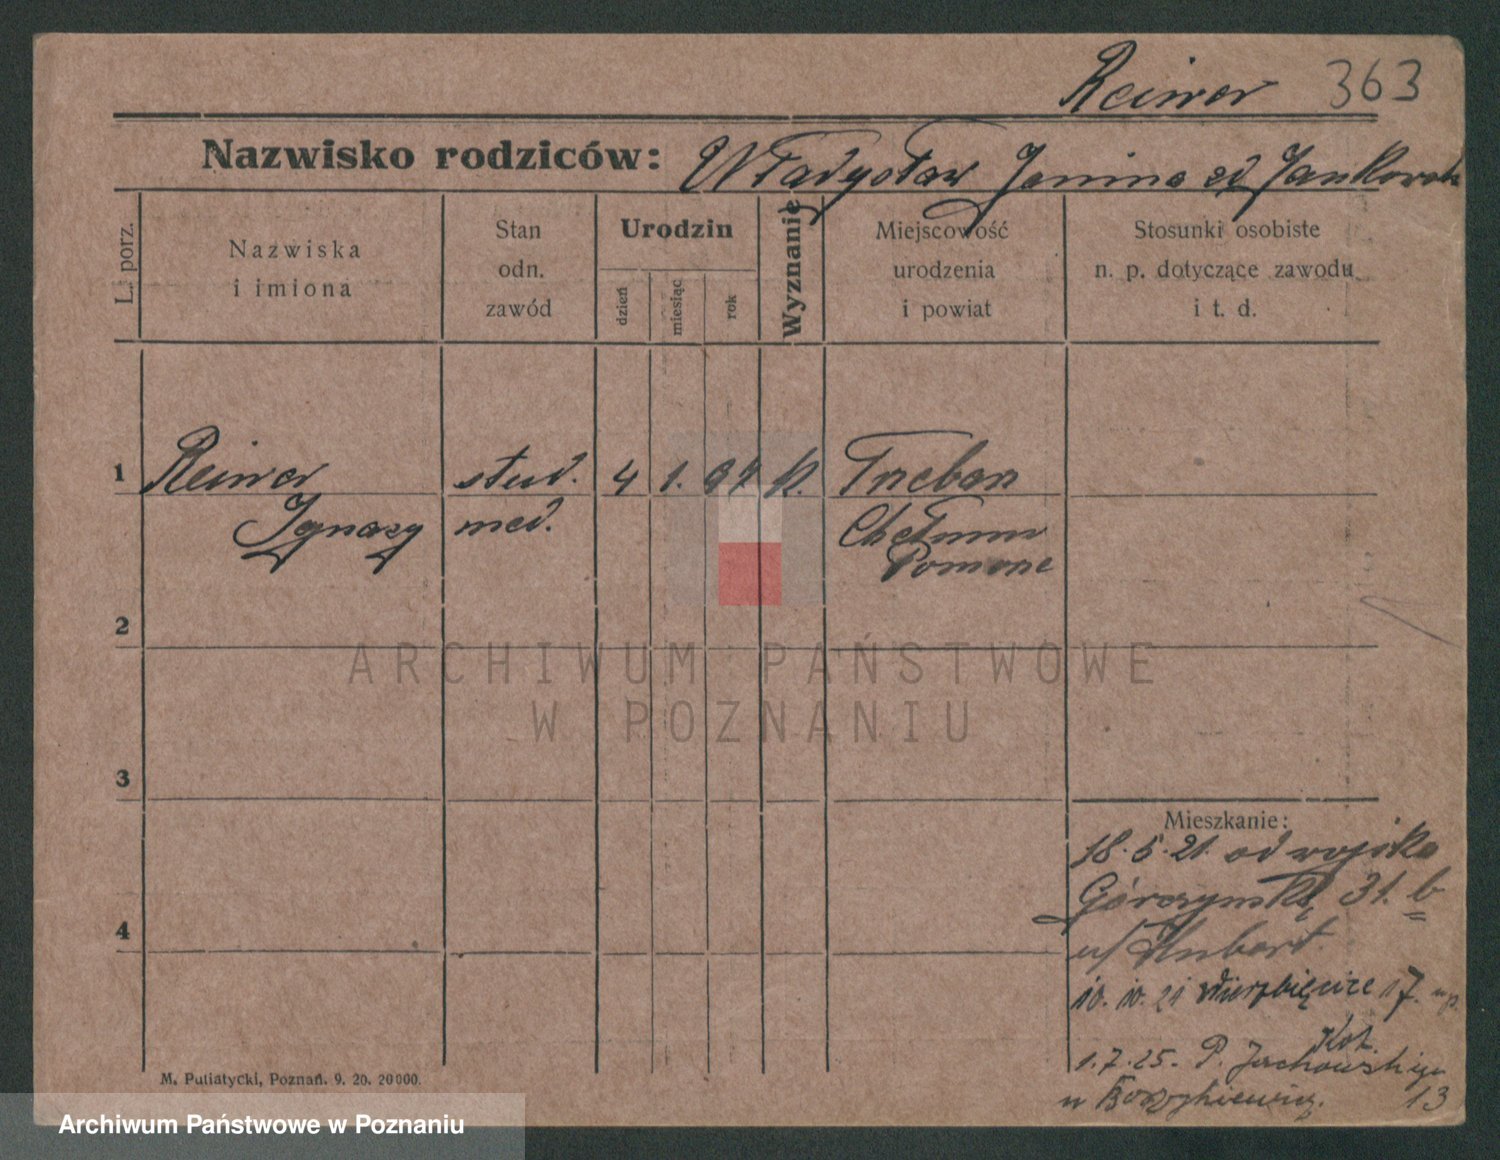 Reiwer 363
Nazwisko rodziców: Władysław Janina zd Jankowska
L. porz.
Nazwiska
i imiona
Stan
odn.
zawód
Urodzin
dzień
miesiąc
rok
Wyznanie
Miejscowość
urodzenia
i powiat
Stosunki osobiste
n. p. dotyczące zawodu
i t. d.
1 Reiwer stud. 4 1. 97 k. Trzeban
Ignacy med. Chełmno
Pomorze
2
3
4
ARCHIWUM PAŃSTWOWE
W POZNANIU
Mieszkanie:
18.5.21. od wojska
Górczyńska 31. b
u/ Hubert.
10.10.21 Wierzbięcice 17.
1.7.25. P. Jackowskiego
13
M. Putiatycki, Poznań. 9. 20. 20000.
Archiwum Państwowe w Poznaniu